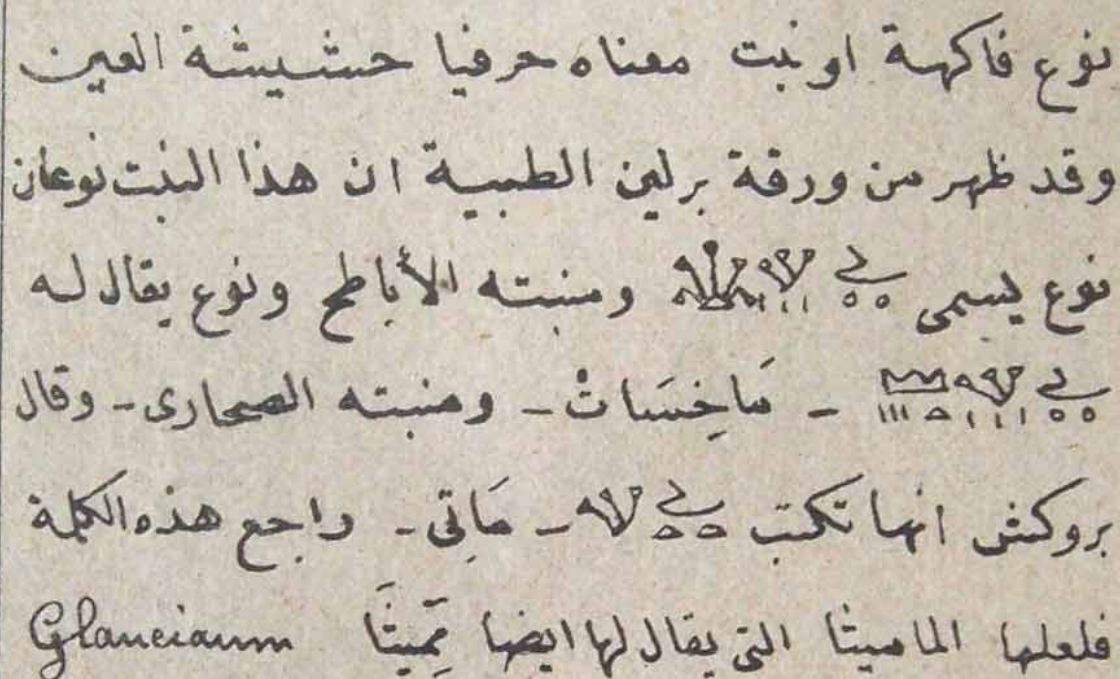 نوع فاكهة او نبت معناه حرفيا حشيشة العين
وقد ظهر من ورقة برلين الطبية ان هذا النبت نوعان
نوع يسمى ومنبته الأباطح ونوع يقال له
- مَاخِسَاتْ - ومنبته الصحارى - وقال
بروكش انها تكتب - مَاتِى - راجع هذه الكلمة
فلعلها الماميثا التى يقال لها ايضا مِّميثَا Glauciaum